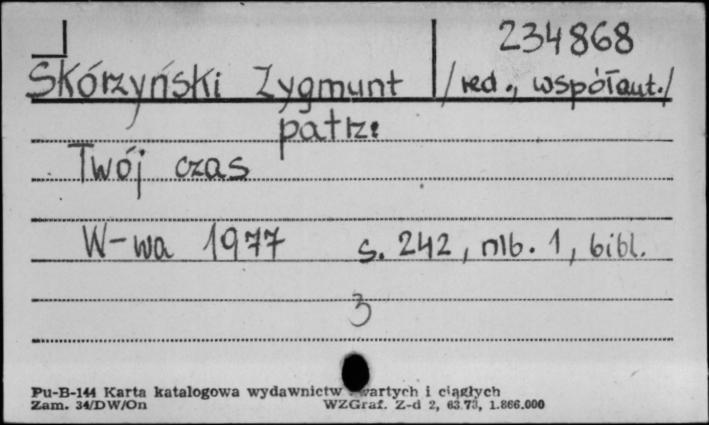 234868
Skórzyński Zygmunt /red., współaut./
patrz:
Twój czas
W-wa 1977 s. 242, nlb. 1, bibl.
3
Pu-B-144 Karta katalogowa wydawnictw i ciągłych
Zam. 34/DW/On WZGraf. Z-d 2, 63.73, 1.866.000